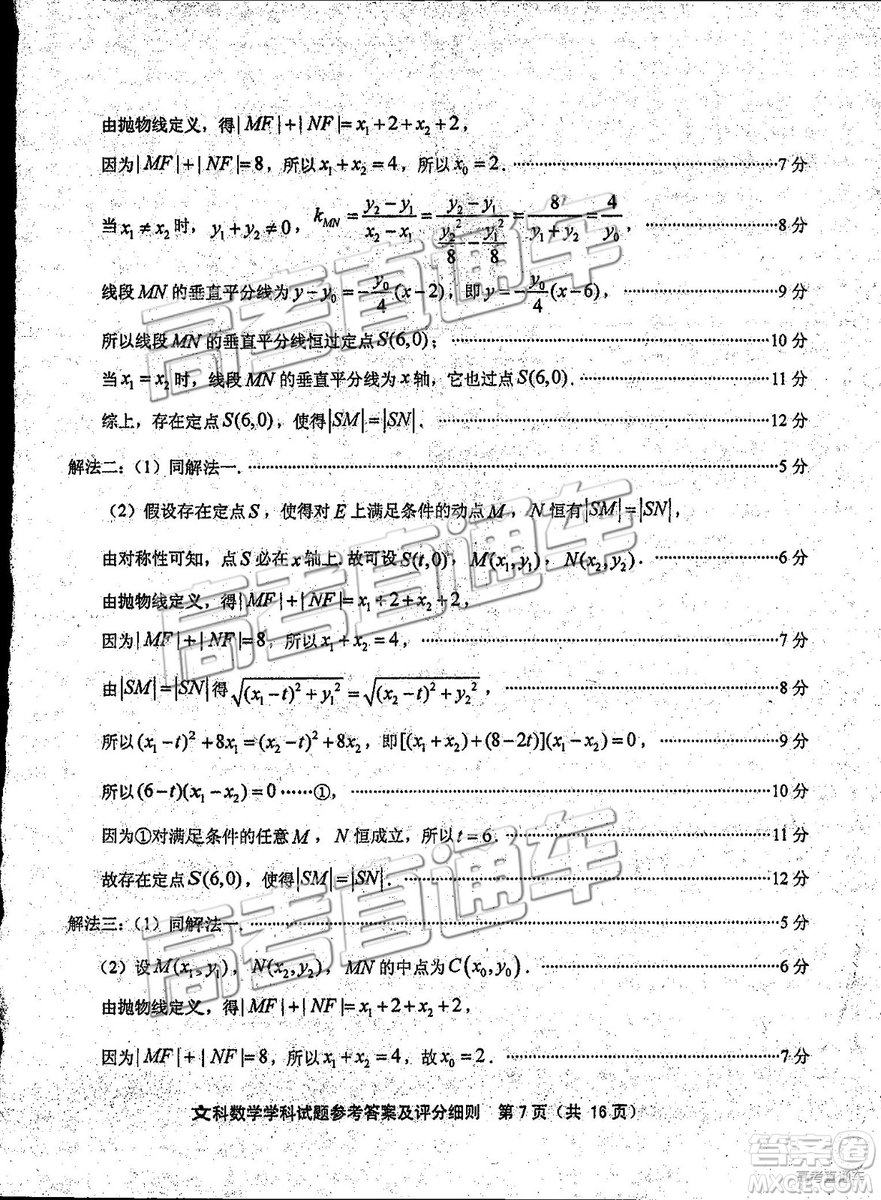 由抛物线定义，得|MF|+|NF|=x₁+2+x₂+2，
因为|MF|+|NF|=8，所以x₁+x₂=4，所以x₀=2．……7分
当x₁≠x₂时，y₁+y₂≠0，k_MN=(y₂−y₁)/(x₂−x₁)=(y₂−y₁)/(y₂²/8−y₁²/8)=8/(y₁+y₂)=4/y₀，……8分
线段MN的垂直平分线为y−y₀=−y₀/4(x−2)，即y=−y₀/4(x−6)，……9分
所以线段MN的垂直平分线恒过定点S(6,0)；……10分
当x₁=x₂时，线段MN的垂直平分线为x轴，它也过点S(6,0)．……11分
综上，存在定点S(6,0)，使得|SM|=|SN|．……12分
解法二：（1）同解法一．……5分
（2）假设存在定点S，使得对E上满足条件的动点M，N恒有|SM|=|SN|，
由对称性可知，点S必在x轴上．故可设S(t,0)，M(x₁,y₁)，N(x₂,y₂)．……6分
由抛物线定义，得|MF|+|NF|=x₁+2+x₂+2，
因为|MF|+|NF|=8，所以x₁+x₂=4，……7分
由|SM|=|SN|得√((x₁−t)²+y₁²)=√((x₂−t)²+y₂²)，……8分
所以(x₁−t)²+8x₁=(x₂−t)²+8x₂，即[(x₁+x₂)+(8−2t)](x₁−x₂)=0，……9分
所以(6−t)(x₁−x₂)=0……①，……10分
因为①对满足条件的任意M，N恒成立，所以t=6．……11分
故存在定点S(6,0)，使得|SM|=|SN|．……12分
解法三：（1）同解法一．……5分
（2）设M(x₁,y₁)，N(x₂,y₂)，MN的中点为C(x₀,y₀)．……6分
由抛物线定义，得|MF|+|NF|=x₁+2+x₂+2，
因为|MF|+|NF|=8，所以x₁+x₂=4，故x₀=2．……7分
文科数学学科试题参考答案及评分细则 第7页（共 16页）
高考直通车
高考直通车
高考直通车
答案圈
高考直通车
MXQE.COM